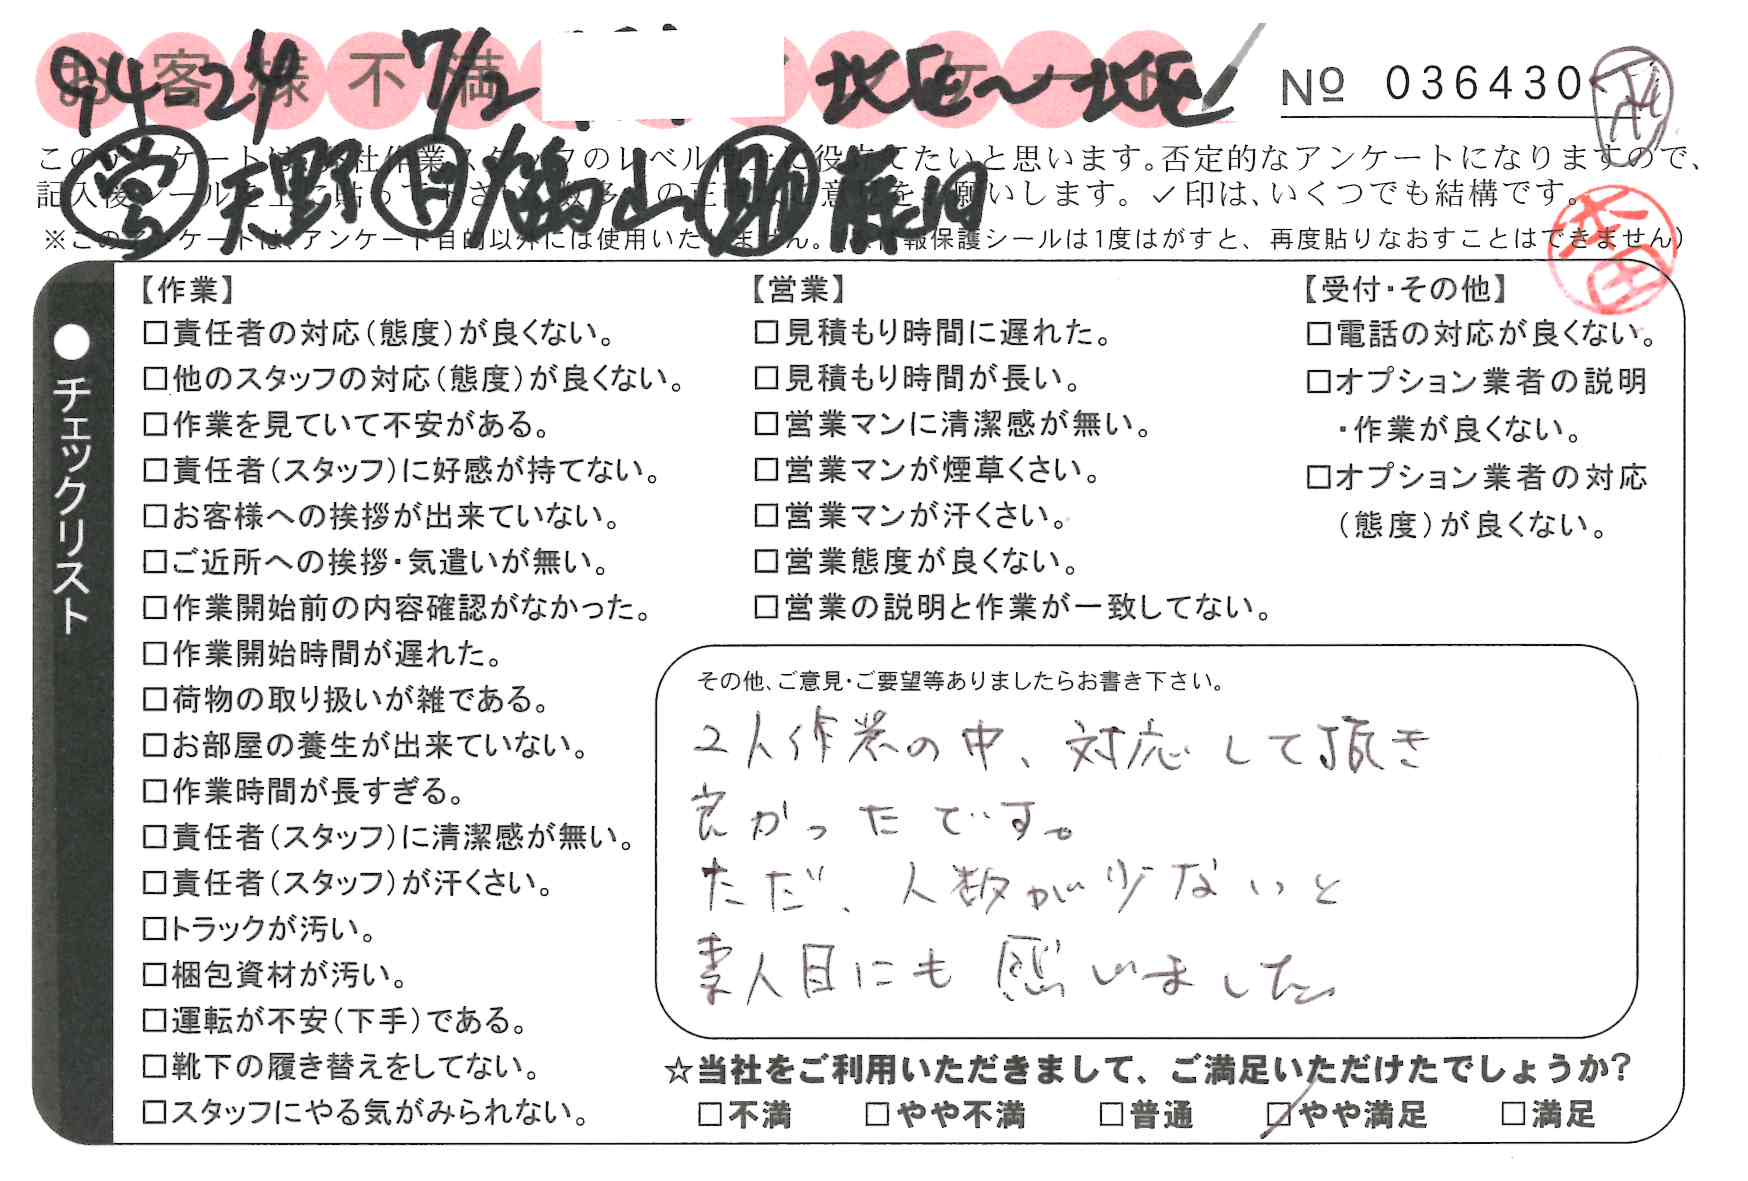 お客様不満
94-24 7/2 北区〜北区
№ 036430
このアンケートは、当社作業スタッフのレベル向上に役立てたいと思います。否定的なアンケートになりますので、
記入後シールを上に貼って下さい。
いします。✓印は、いくつでも結構です。
営 天野 鶴山 助
※このアンケートは、アンケート目的以外には使用いたしません。
報保護シールは1度はがすと、再度貼りなおすことはできません)
本田
●チェックリスト
【作業】
□責任者の対応(態度)が良くない。
□他のスタッフの対応(態度)が良くない。
□作業を見ていて不安がある。
□責任者(スタッフ)に好感が持てない。
□お客様への挨拶が出来ていない。
□ご近所への挨拶・気遣いが無い。
□作業開始前の内容確認がなかった。
□作業開始時間が遅れた。
□荷物の取り扱いが雑である。
□お部屋の養生が出来ていない。
□作業時間が長すぎる。
□責任者(スタッフ)に清潔感が無い。
□責任者(スタッフ)が汗くさい。
□トラックが汚い。
□梱包資材が汚い。
□運転が不安(下手)である。
□靴下の履き替えをしてない。
□スタッフにやる気がみられない。
【営業】
□見積もり時間に遅れた。
□見積もり時間が長い。
□営業マンに清潔感が無い。
□営業マンが煙草くさい。
□営業マンが汗くさい。
□営業態度が良くない。
□営業の説明と作業が一致してない。
【受付・その他】
□電話の対応が良くない。
□オプション業者の説明
・作業が良くない。
□オプション業者の対応
(態度)が良くない。
その他、ご意見・ご要望等ありましたらお書き下さい。
2人作業の中、対応して頂き
良かったです。
ただ、人数が少ないと
素人目にも感いました
☆当社をご利用いただきまして、ご満足いただけたでしょうか?
□不満 □やや不満 □普通 ☑やや満足 □満足